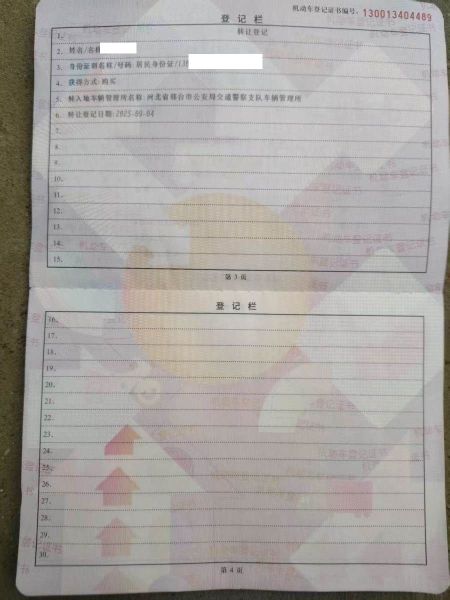 机动车登记证书编号: 130013404489
登 记 栏
1. 转让登记
2. 姓名/名称
3. 身份证明名称/号码: 居民身份证/130
4. 获得方式: 购买
5. 转入地车辆管理所名称: 河北省邢台市公安局交通警察支队车辆管理所
6. 转让登记日期: 2025-09-04
7.
8.
9.
10.
11.
12.
13.
14.
15.
第 3 页
登 记 栏
16.
17.
18.
19.
20.
21.
22.
23.
24.
25.
26.
27.
28.
29.
30.
第 4 页